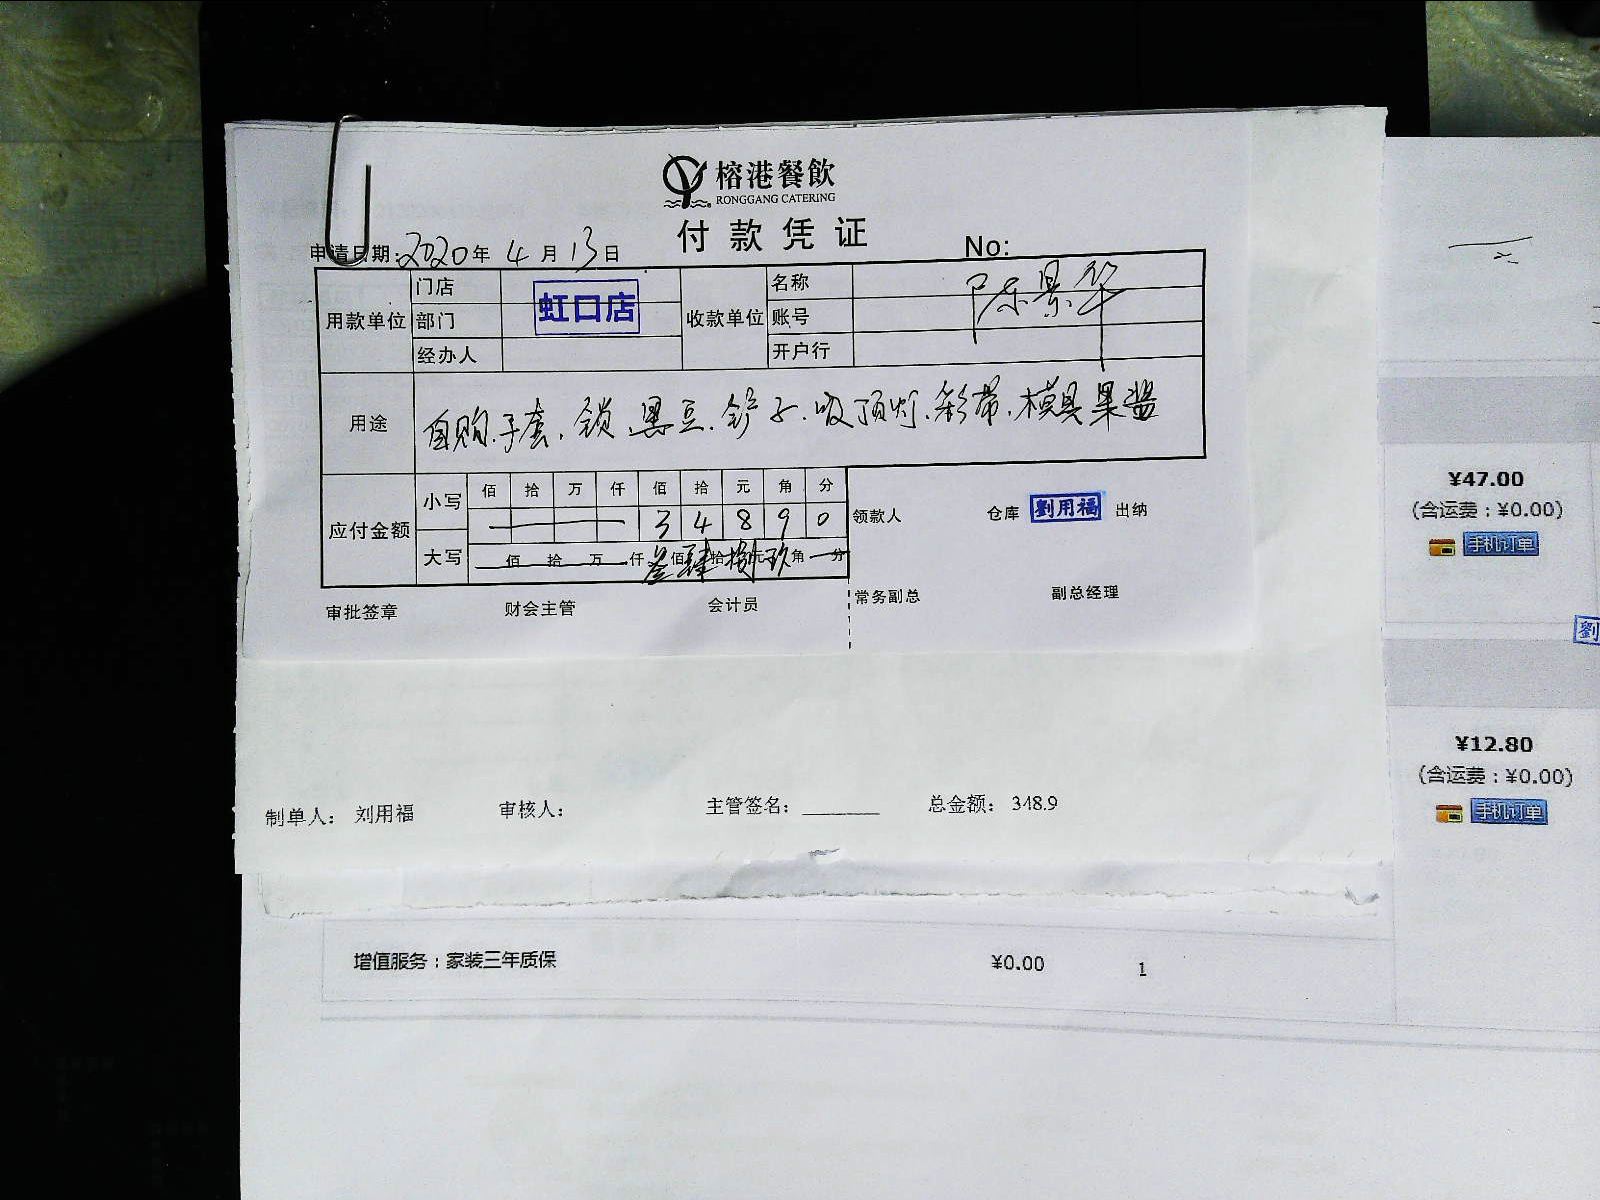 榕港餐飲
RONGGANG CATERING
付款凭证
申请日期:2020年 4月 13日 No:
用款单位 门店 部门 经办人 虹口店 收款单位 名称 账号 开户行 陈景华
用途 自购.手套.锁.黑豆.铲子.吸顶灯.彩带.模具果酱
应付金额 小写 佰 拾 万 仟 佰 拾 元 角 分
3 4 8 9 0
大写 佰 拾 万 仟 叁佰 肆拾 捌元 玖角 分
领款人 仓库 劉用福 出纳
审批签章 财会主管 会计员 常务副总 副总经理
制单人: 刘用福 审核人: 主管签名: 总金额: 348.9
增值服务:家装三年质保 ¥0.00 1
¥47.00
(含运费:¥0.00)
手机订单
劉
¥12.80
(含运费:¥0.00)
手机订单